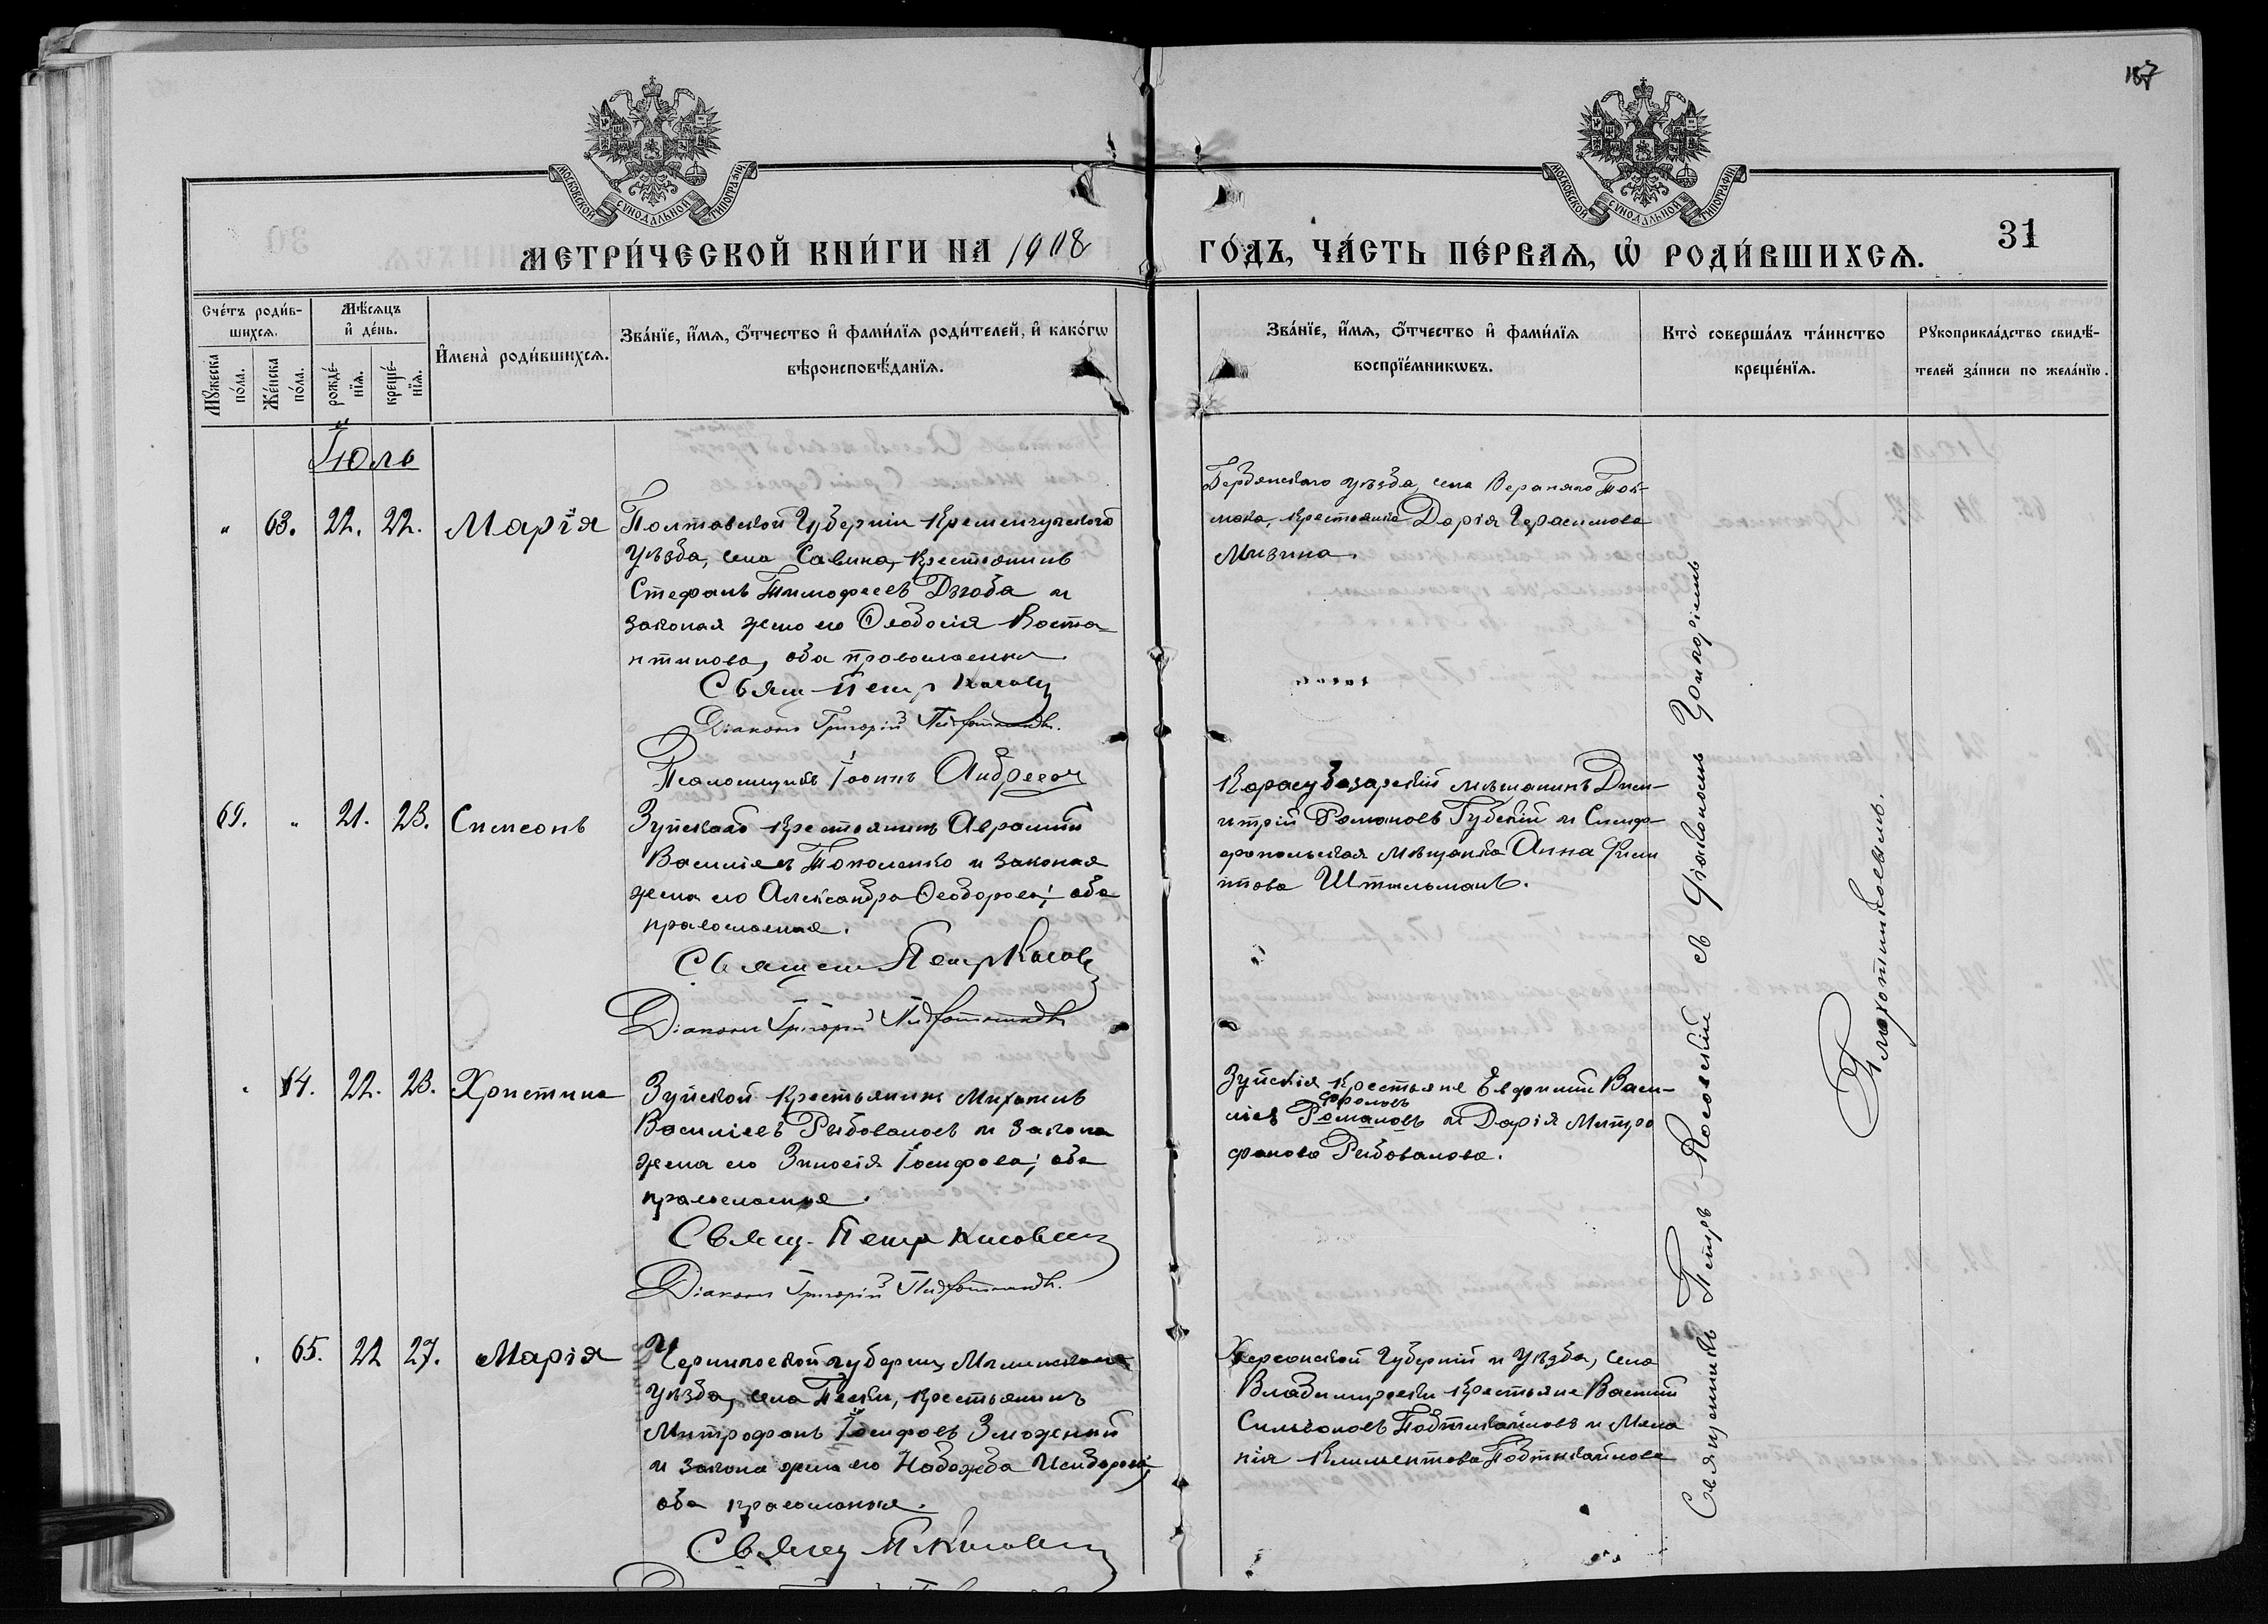 187
МОСКОВСКОЙ СѴНОДАЛЬНОЙ ТИПОГРАФІИ
МОСКОВСКОЙ СѴНОДАЛЬНОЙ ТИПОГРАФІИ
МЕТРИ́ЧЕСКОЙ КНИ́ГИ НА 1908
ГО́ДЪ, ЧА́СТЬ ПЕ́РВАѦ, Ѡ҆ РОДИ́ВШИХСѦ.
31
Сче́тъ роди́в-
шихсѧ.
Мꙋжеска по́ла.
Же́нска по́ла.
Мѣ́сѧцъ
и҆ де́нь.
рожде́-
нїѧ.
креще́-
нїѧ.
И҆мена̀ роди́вшихсѧ.
Зва́нїе, и҆́мѧ, ѻ҆́тчество и҆ фами́лїѧ роди́телей, и҆ како́гѡ
вѣроисповѣ́данїѧ.
Зва́нїе, и҆́мѧ, ѻ҆́тчество и҆ фами́лїѧ
воспрїе́мникѡвъ.
Кто̀ соверша́лъ та́инство
креще́нїѧ.
Рꙋкоприкла́дство свидѣ́-
телей за́писи по жела́нїю.
Іюль
" 63. 22. 22. Марія
Полтавской Губерніи Кременчугского
Уѣзда, села Савина, крестьянинъ
Стефанъ Тимофеевъ Дзюба и
законая жена его Ѳеодосія Конста-
нтинова, оба православныя
Свящ Петр Косовск
Діаконъ Григорій
Псаломщикъ Іоаннъ Андреевъ
Бердянскаго уѣзда, села Верхняго Ток-
мака, крестьянка Дарія Герасимова
Мизина.
69. " 21. 23. Симеонъ
Зуйскаго крестьянинъ Аврамій
Василіевъ Тополенко и законая
жена его Александра Ѳеодорова; оба
православныя.
Священ Петр Косовс
Діаконъ Григорій
Карасубазарскій мѣщанинъ Дим-
итрій Романовъ Губскій и Симфе-
ропольская мѣщанка Анна
Штильманъ.
" 64. 22. 23. Христина
Зуйской крестьянинъ Михаилъ
Василіевъ Рыбоваловъ и закона
жена его Зиновія Іосифова; оба
православные.
Свящ. Петр Косовск
Діаконъ Григорій
Зуйскія крестьяне Евфимій Васи-
ліев Романовъ и Дарія Митро
фанова Рыбовалова.
Фроловъ
" 65. 22 27. Марія
Черниговской губерніи Мглинскаго
уѣзда, села Пески, крестьянинъ
Митрофанъ Іосифовъ
и закона жена его Надежда Исидорова,
оба православныя.
Свящ П Косовск
Херсонской Губерній и Уѣзда, села
Владимировки крестьяне Василій
Симеоновъ и Мела
нія Климентова
Священникъ Петръ Косовскій съ Діакономъ Григоріемъ